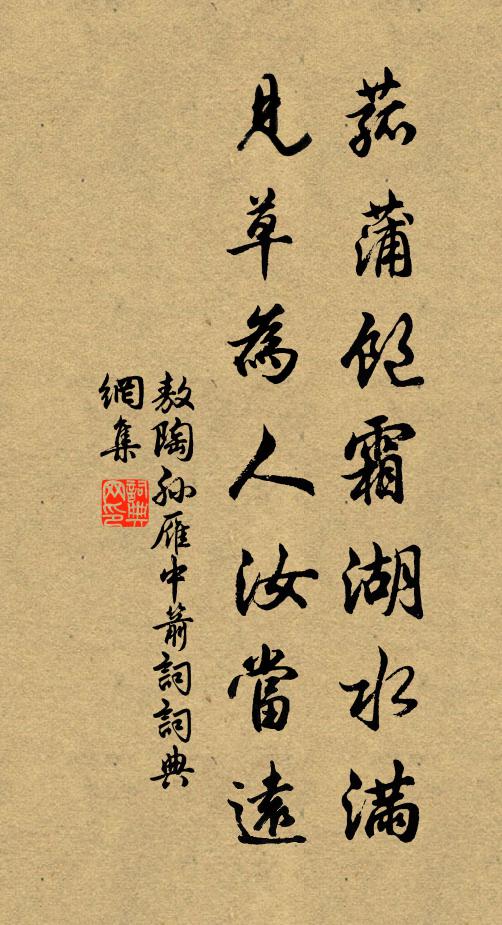 菰蒲飽霜湖水滿
見草為人汝當遠
敖陶孫雁中箭詞詞典
網集
詞典網印